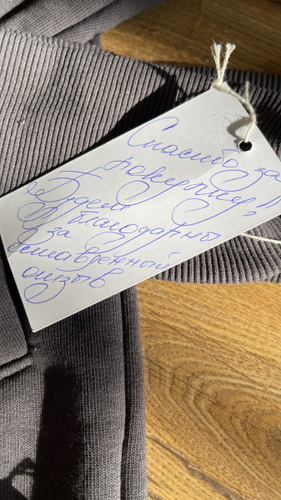 Спасибо за
покупку!!
Будем
благодарны
за
оставленный
отзыв